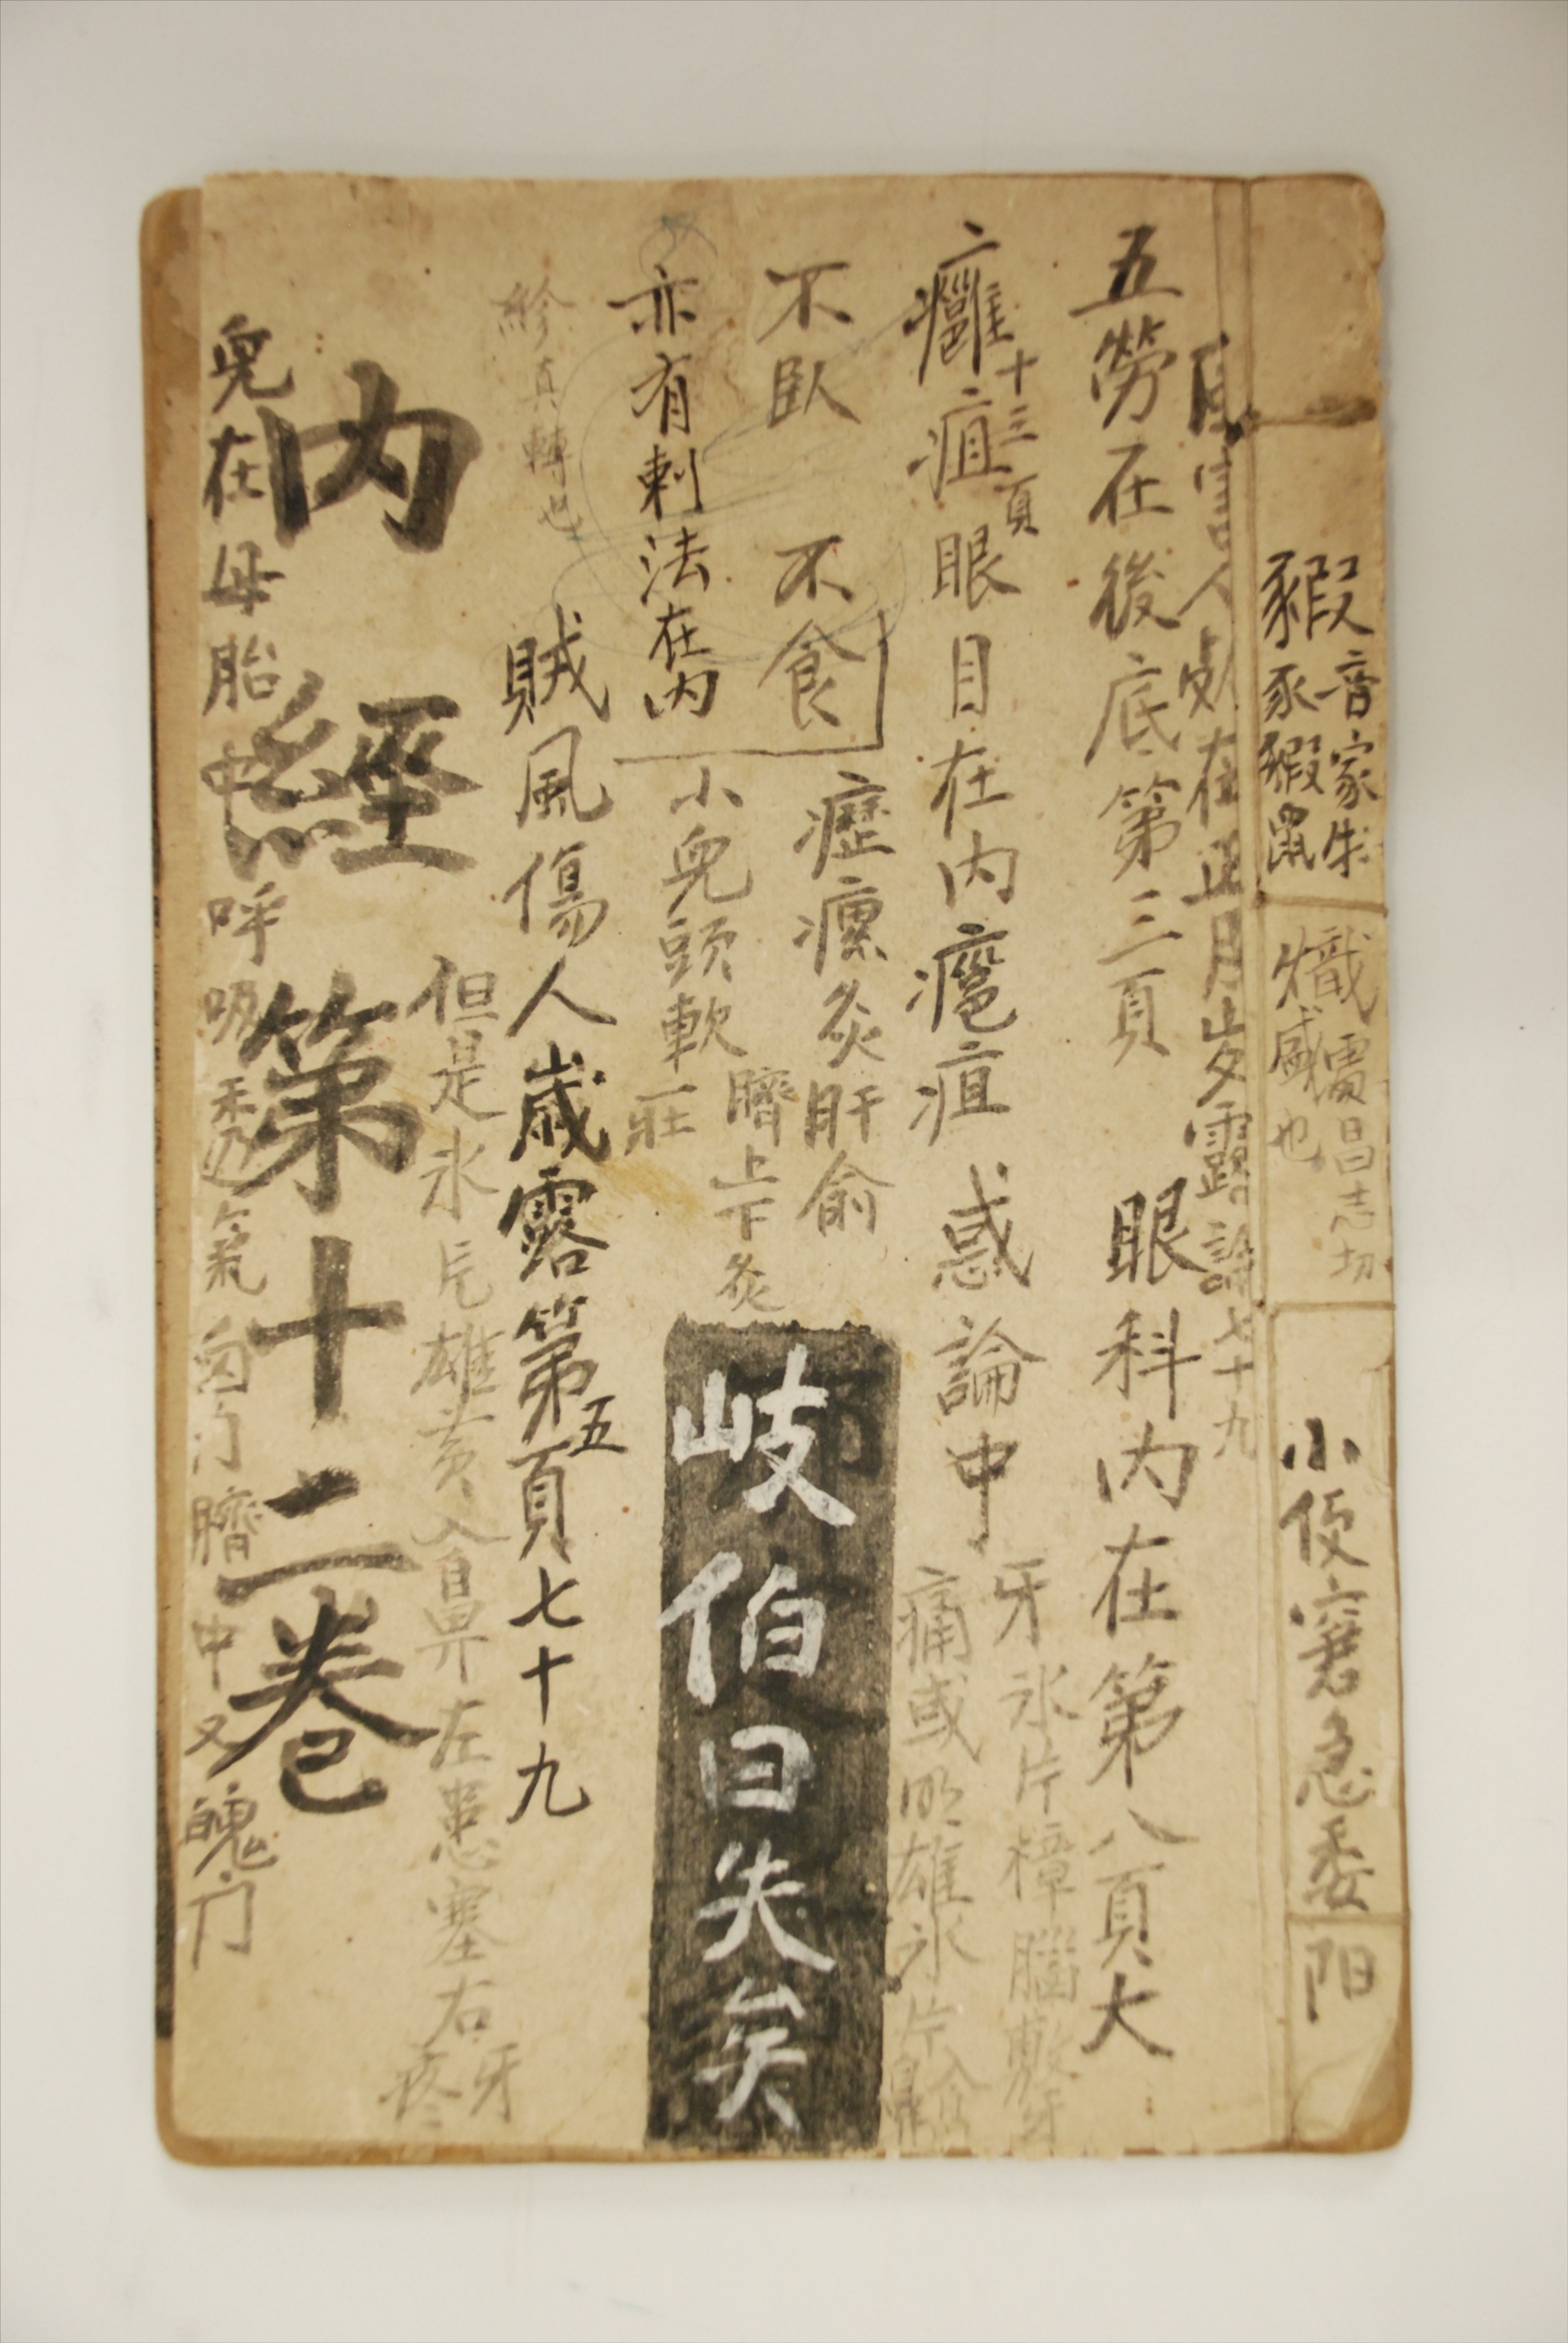 豭音家牡
豕豭鼠
熾 昌志切
盛也
小便窘急委
阳
人 在正月岁露論七十九
五勞在後底第三頁
眼科內在第八頁大
十三頁
癰疽眼目在內癰疽惑論中
牙氷片樟腦敷牙
痛或明雄氷片
不臥 不食
瘰癧灸肝俞
臍上下灸
亦有刺法在內
小兒頭軟一莊
岐伯曰失矣
紾真轉也
賊風傷人歲露第五頁七十九
但是氷片雄黄 鼻左患塞右
牙疼
內經第十二卷
兒在母胎中呼吸 透氣囟门臍中又魄门